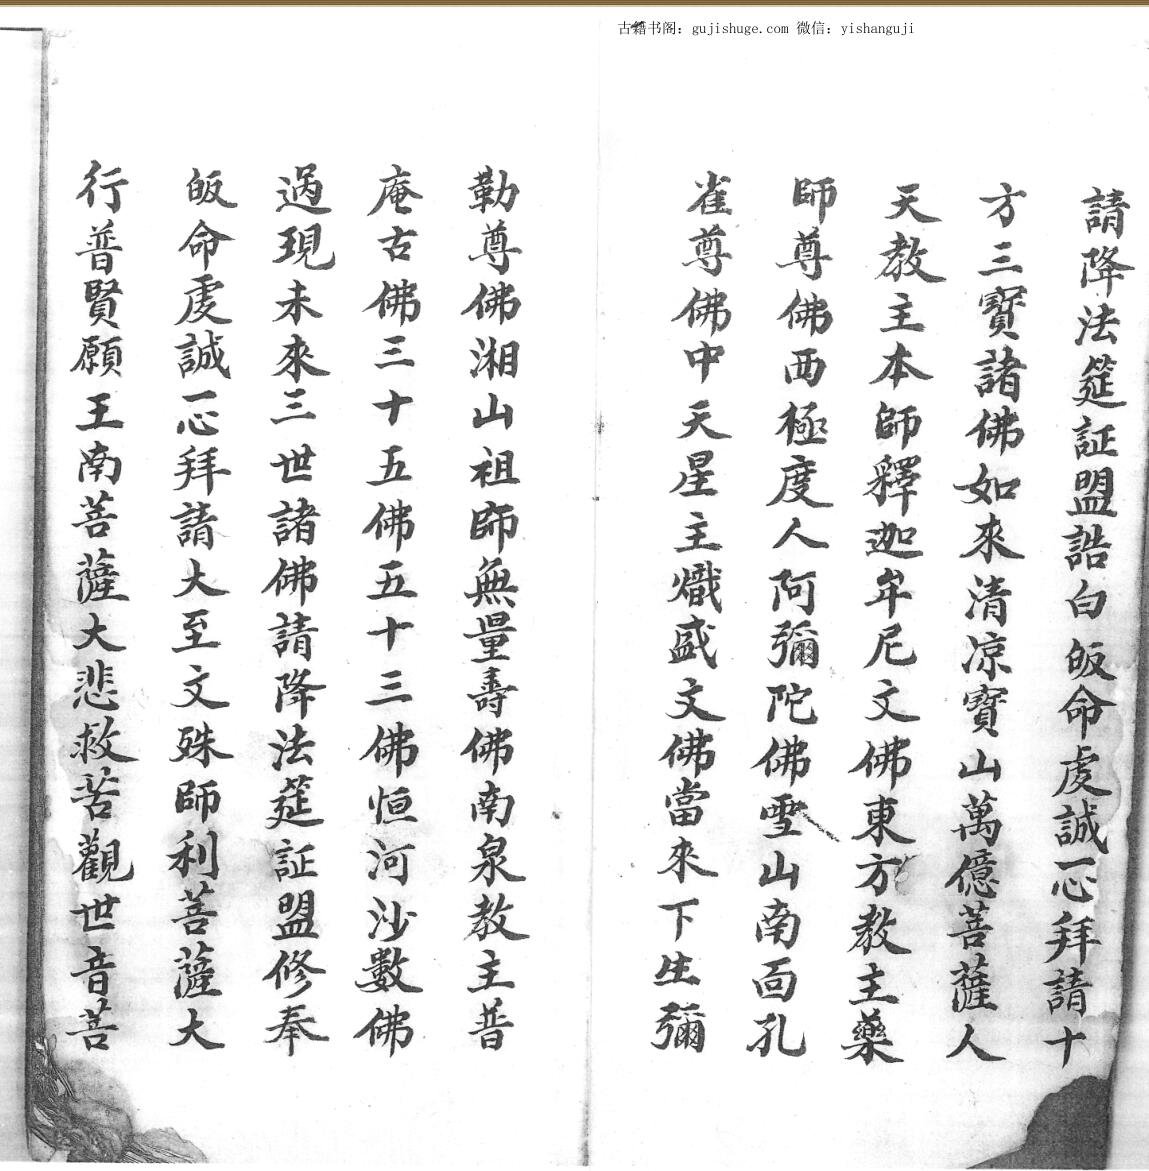 古籍书阁：gujishuge.com 微信：yishanguji
請降法筵証盟誥白皈命虔誠一心拜請十
方三寳諸佛如來清凉寳山萬億菩薩人
天教主本師釋迦牟尼文佛東方教主藥
師尊佛西極度人阿彌陀佛雪山南面孔
雀尊佛中天星主熾盛文佛當來下生彌
勒尊佛湘山祖師無量壽佛南泉教主普
庵古佛三十五佛五十三佛恒河沙數佛
過現未來三世諸佛請降法筵証盟修奉
皈命虔誠一心拜請大至文殊師利菩薩大
行普賢願王南菩薩大悲救苦觀世音菩